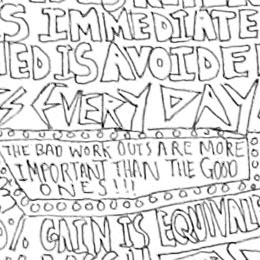 S IMMEDIATE
ED IS AVOIDE
EVERY DAY
THE BAD WORK OUTS ARE MORE
IMPORTANT THAN THE GOOD
ONES!!!
% GAIN IS EQUIVAL